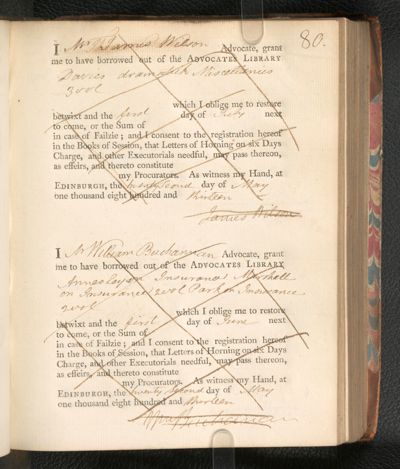 80.
I Mr James Wilson Advocate, grant
me to have borrowed out of the ADVOCATES LIBRARY
Davies dramatick Miscellanies
3 vol
which I oblige me to restore
betwixt and the first day of July next
to come, or the Sum of
in case of Failzie; and I consent to the registration hereof
in the Books of Session, that Letters of Horning on six Days
Charge, and other Executorials needful, may pass thereon,
as effeirs, and thereto constitute
my Procurators. As witness my Hand, at
EDINBURGH, the day of May
one thousand eight hundred and thirteen
James Wilson
I Mr William Buchannan Advocate, grant
me to have borrowed out of the ADVOCATES LIBRARY
Annesley on Insurance Marshall
on Insurance 2 vol Park on Insurance
2 vol
which I oblige me to restore
betwixt and the first day of June next
to come, or the Sum of
in case of Failzie; and I consent to the registration hereof
in the Books of Session, that Letters of Horning on six Days
Charge, and other Executorials needful, may pass thereon,
as effeirs, and thereto constitute
my Procurators. As witness my Hand, at
EDINBURGH, the twenty second day of May
one thousand eight hundred and thirteen